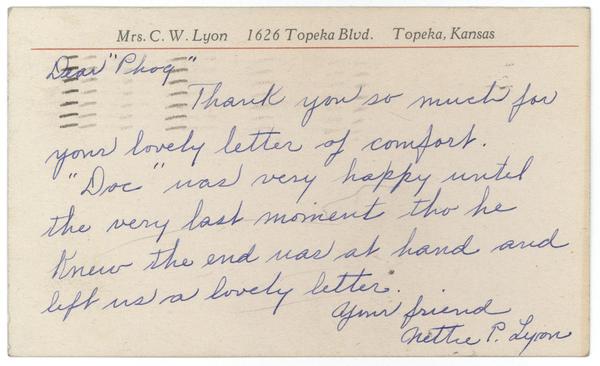 Mrs. C. W. Lyon 1626 Topeka Blvd. Topeka, Kansas
Dear "Phog"
Thank you so much for
your lovely letter of comfort.
"Doc" was very happy until
the very last moment tho he
knew the end was at hand and
left us a lovely letter.
Your friend
Nettie P. Lyon